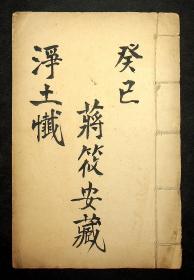 癸巳
蔣筱安藏
淨土懺